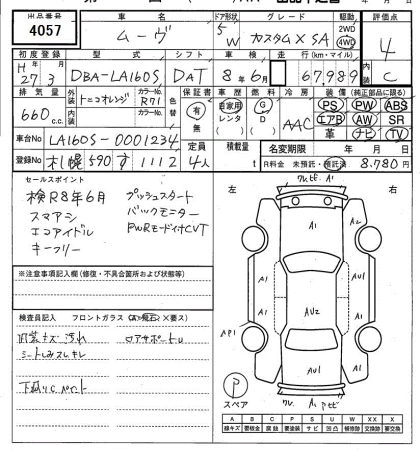 出品番号 車名 ドア形状 グレード 駆動 評価点
4057 ムーヴ 5 W カスタム X SA 2WD 4WD 4
初度登録 型式 シフト 車検 走行 (km・マイル) 内装
H 27年 3月 DBA-LA160S DAT 8年 6月 67,989 C
排気量 外装 カラーNo. 色替 保証書 車歴 燃料 冷房 装備 (純正部品に限る)
660 c.c. トニコオレンジ R71 有 無 自家用 レンタ G D AAC PS PW ABS
エアB AW SR
革 ナビ TV
車台No LA160S-0001234 定員 積載量 名変期限 年 月 日
登録No 札幌 590 す 1112 4人 t R料金 未預託・預託済 8,780円
セールスポイント
検R8年6月 プッシュスタート
スマアシ バックモニター
エコアイドル PWRモード付CVT
キーフリー
※注意事項記入欄 (修復・不具合箇所および状態等)
検査員記入 フロントガラス
内装キズ 汚れ ロアサポートU
シートしみスレキレ
下廻りC
左 右
A1
A2
A1 AU1
AU2
A1 A1 AU1
AP1
AU1
P
スペア
A B C P S U W X XX
線キズ 要板金 腐蝕 要塗装 サビ 凹凸 補修跡 要交換 交換済